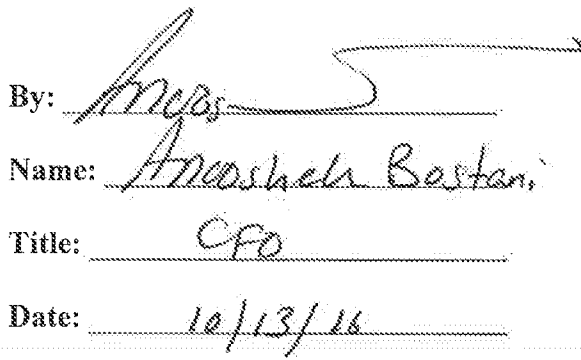 By: Anoos
Name: Anoosheh Bostani
Title: CFO
Date: 10/13/16